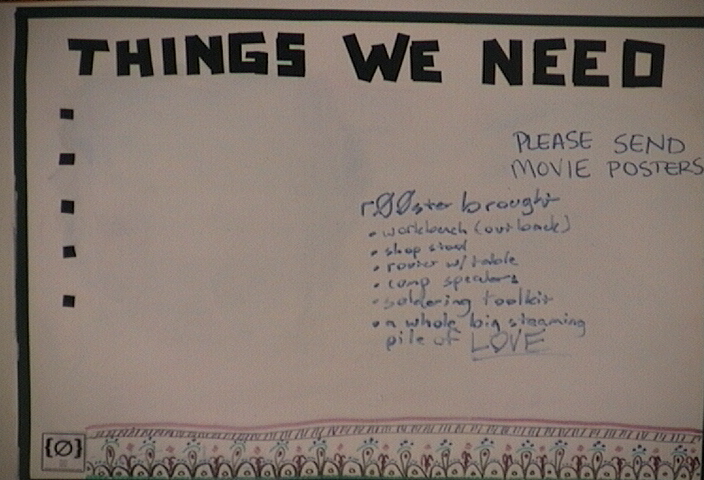 THINGS WE NEED
PLEASE SEND
MOVIE POSTERS
rØØster brought
• workbench (out back)
• shop stool
• router w/ table
• comp speakers
• soldering toolkit
• a whole big steaming
pile of LOVE
{Ø}